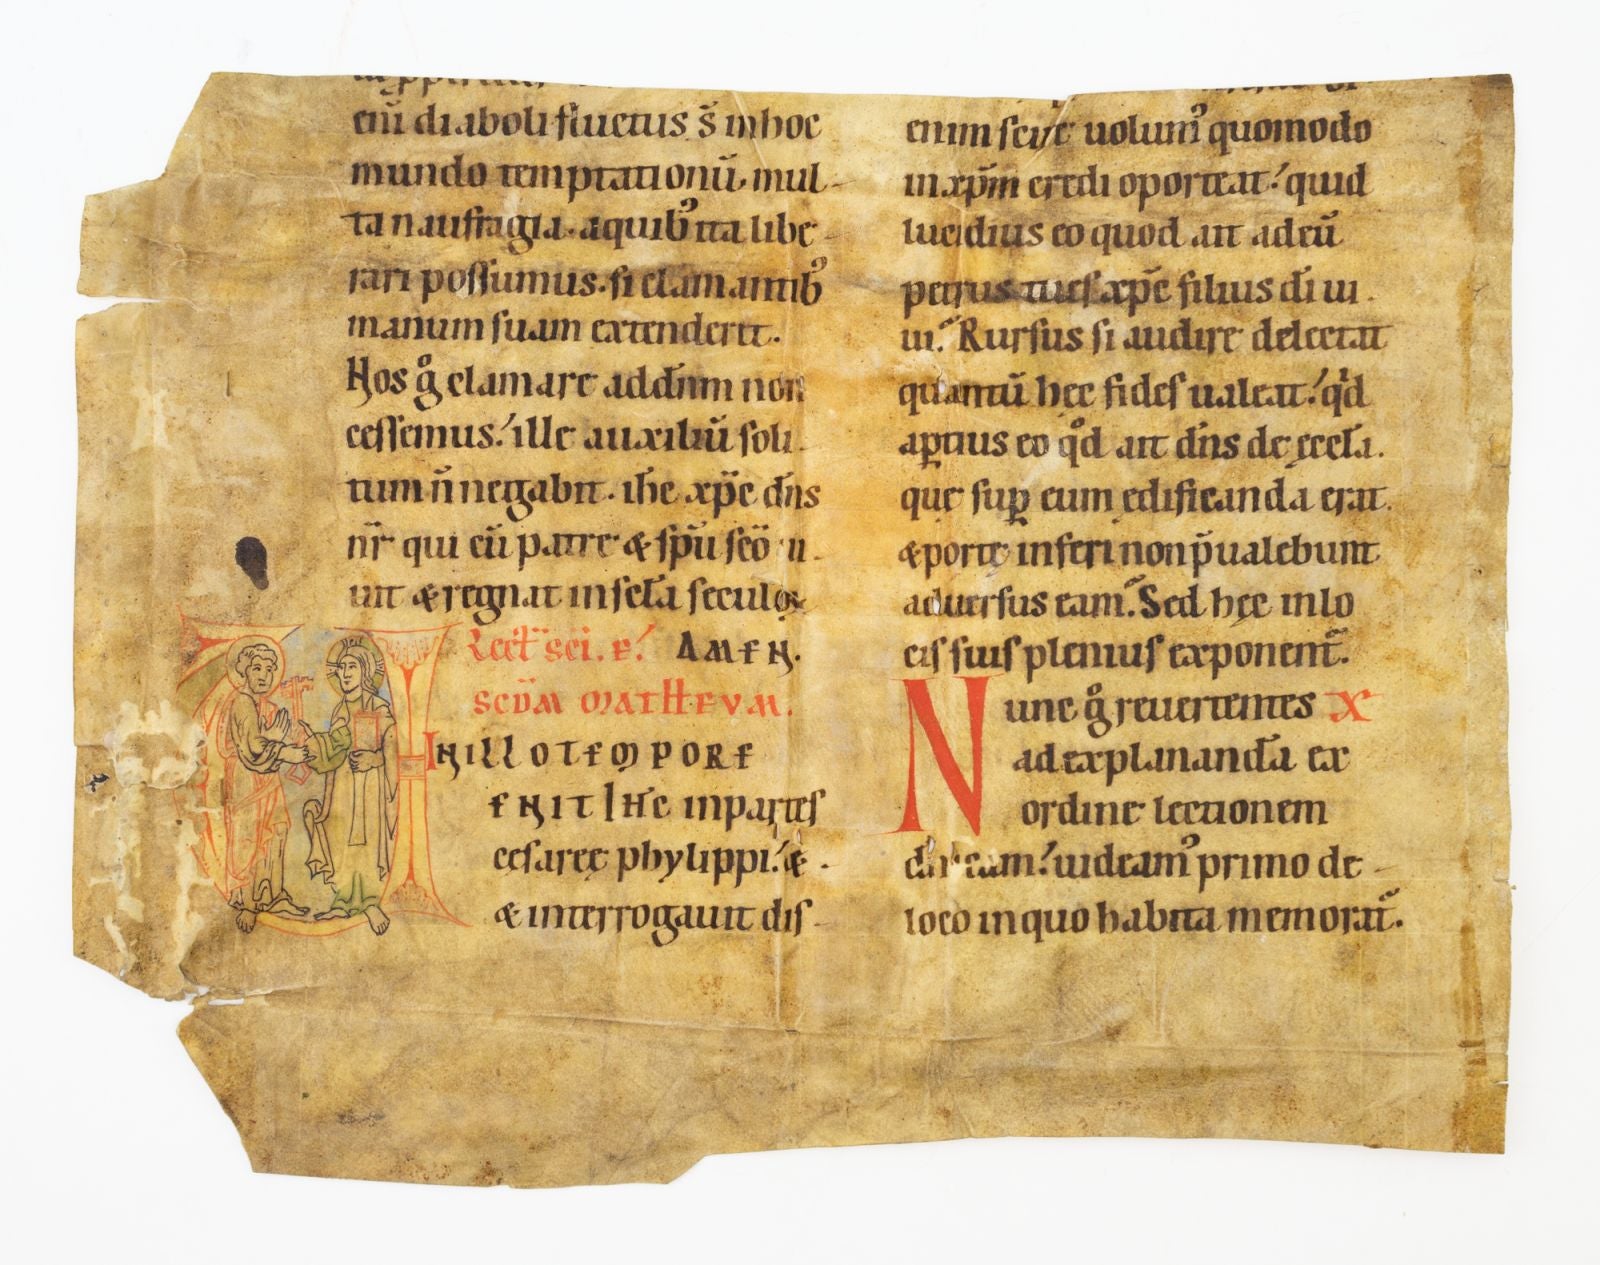 eni diaboli fluctus s̄ inhoc
mundo temptationū. mul-
ta naufragia. aquibꝰ ita libe-
rari possumus. si clamantibꝰ
manum suam extenderit.
Hos g° clamare addn̄m non
cessemus. ille auxiliū soli-
tum n̄ negabit. ihc̄ xpc̄ dn̄s
nr̄ qui cū patre & spū scō ui-
uit & regnat inscl̄a seculoꝝ
Lect̄ sci. e. AMEN.
SCDM MATHEUM.
IN ILLO TEMPORE
ENIT IHC inpartes
cesareę phylippi. &-
& interrogauit dis-
enim scire uolumꝰ quomodo
inxpm̄ credi oporteat. quid
lucidius eo quod ait adeū
petrus tu es xpc̄ filius dī ui-
ui. Rursus si audire delectat
quantū hec fides ualeat. qd
aptius eo qd ait dn̄s de eccl̄a.
que sup eum edificanda erat.
& portę inferi non p̄ualebunt
aduersus eam. Sed hęc inlo
cis suis plenius exponent̄.
Nunc g° reuertentes X
ad explananda ex
ordine lectionem
uideamꝰ primo de-
loco inquo habita memorat̄.